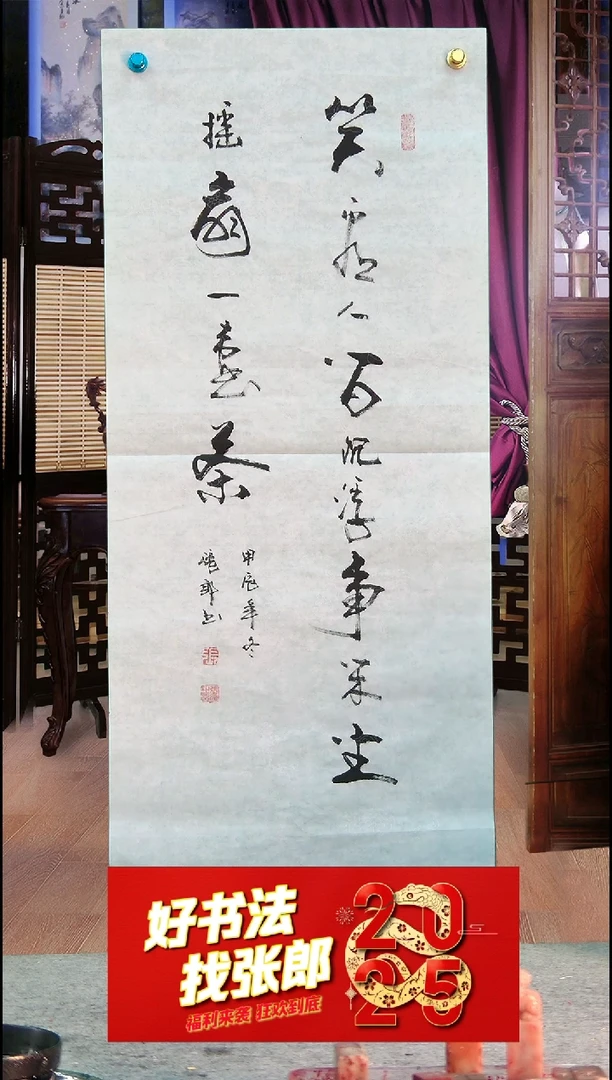 笑看人间沉浮事闲坐
摇扇一壶茶
甲辰年冬
张郎书
好书法
找张郎
福利来袭 狂欢到底
2025